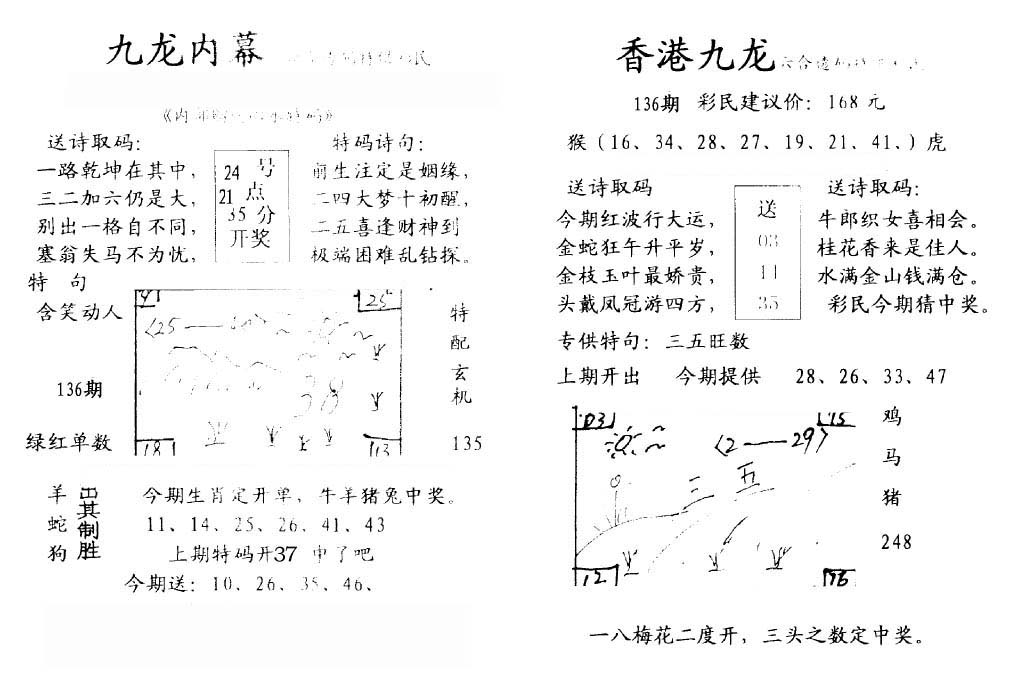 九龙内幕
送诗取码：
一路乾坤在其中，
三二加六仍是大，
别出一格自不同，
塞翁失马不为忧，
24 号
21 点
35 分
开奖
特码诗句：
前生注定是姻缘，
二四大梦十初醒，
二五喜逢财神到
极端困难乱钻探。
特 句
含笑动人
136期
绿红单数
41
25
〈25——
38
18
113
特
配
玄
机
135
羊
蛇
狗
出其制胜
今期生肖定开单，牛羊猪兔中奖。
11、14、25、26、41、43
上期特码开37 中了吧
今期送：10、26、35、46、
香港九龙
136期 彩民建议价：168 元
猴（16、34、28、27、19、21、41、）虎
送诗取码
今期红波行大运，
金蛇狂午升平岁，
金枝玉叶最娇贵，
头戴凤冠游四方，
送
03
11
35
送诗取码：
牛郎织女喜相会。
桂花香来是佳人。
水满金山钱满仓。
彩民今期猜中奖。
专供特句：三五旺数
上期开出 今期提供 28、26、33、47
03
15
〈2——29〉
三 五
12
16
鸡
马
猪
248
一八梅花二度开，三头之数定中奖。